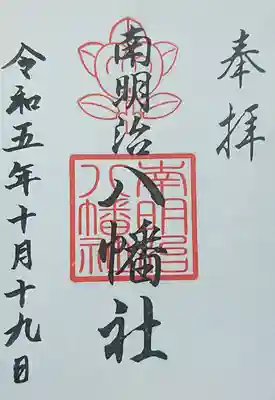 奉拝
南明治八幡社
南明治
八幡社
令和五年十月十九日